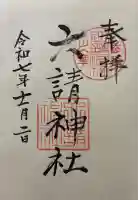 奉拝
六請神社
令和七年十一月二日